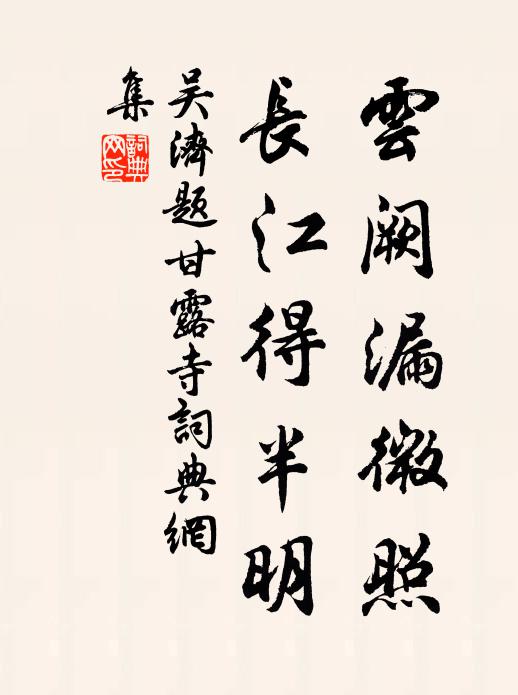 雲阙漏微照
長江得半明
吴濟题甘露寺詞典網
集
詞典
网印